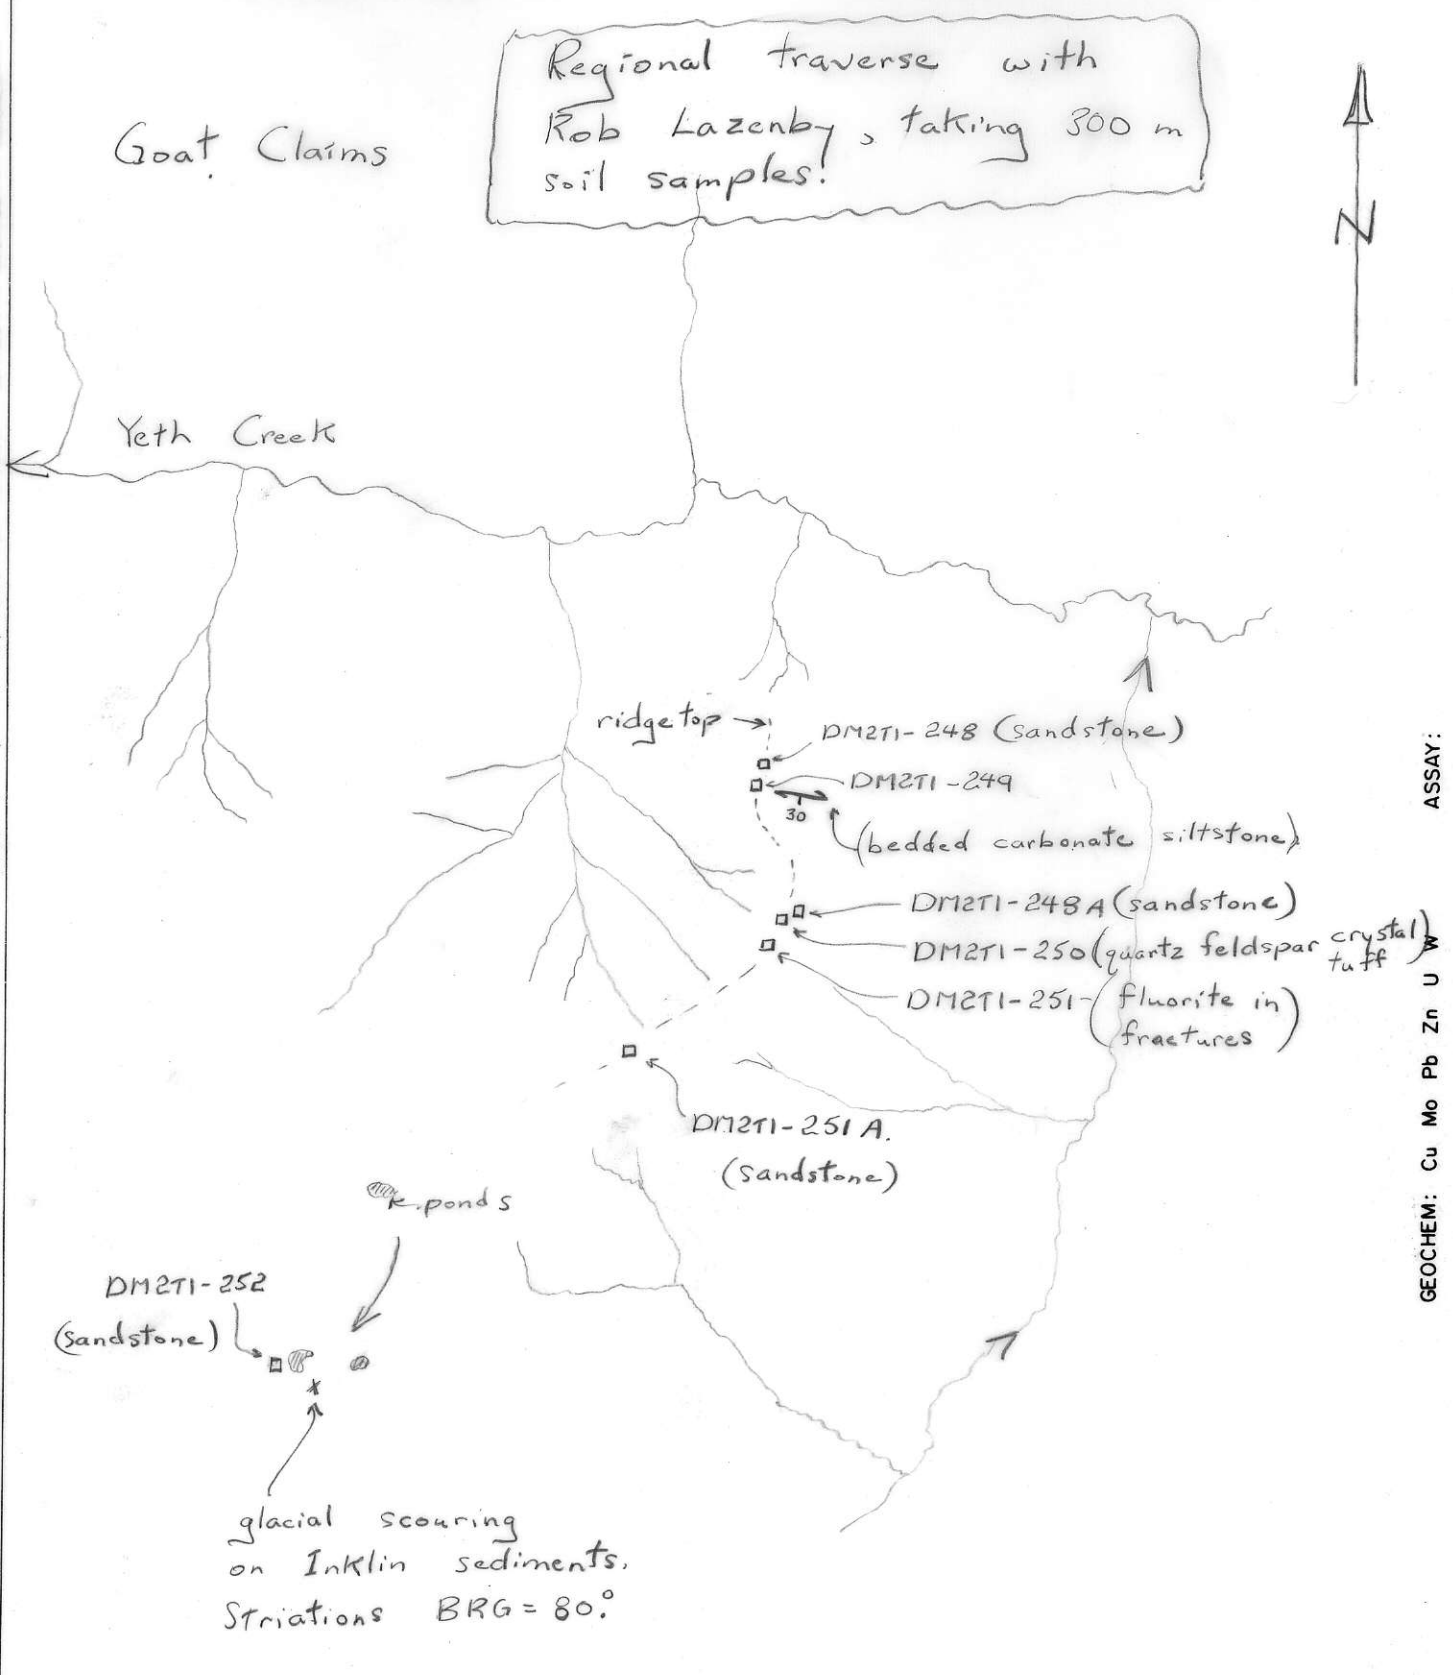 Regional traverse with
Rob Lazenby, taking 300 m
soil samples!
Goat Claims
N
Yeth Creek
ridgetop
DM2T1-248 (sandstone)
DM2T1-249
30
(bedded carbonate siltstone)
DM2T1-248A (sandstone)
DM2T1-250 (quartz feldspar crystal
tuff)
DM2T1-251 (fluorite in
fractures)
DM2T1-251A.
(sandstone)
ponds
DM2T1-252
(sandstone)
x
glacial scouring
on Inklin sediments.
Striations BRG = 80°.
ASSAY:
GEOCHEM: Cu Mo Pb Zn U W